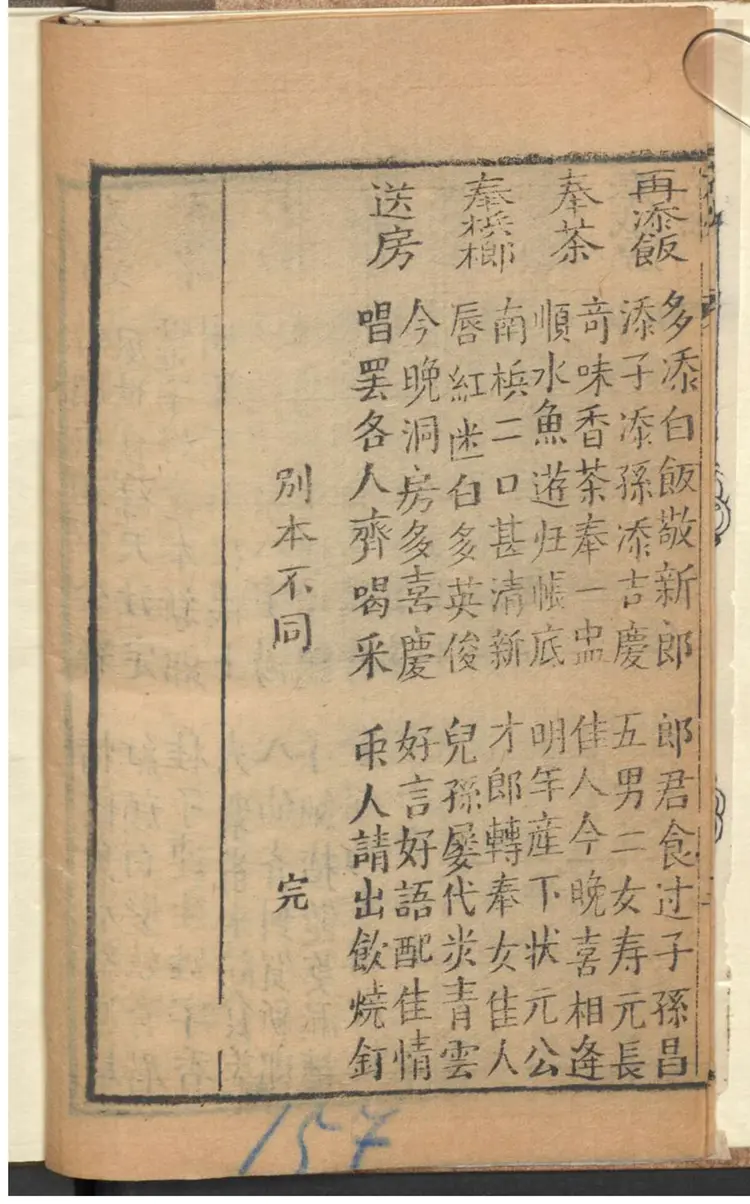 再添飯
多添白飯敬新郎 郎君食过子孫昌
添子添孫添吉慶 五男二女寿元長
奉茶
奇味香茶奉一盅 佳人今晚喜相逢
順水魚遊归帳底 明年産下状元公
奉梹榔
南梹二口甚清新 才郎轉奉女佳人
唇紅迷白多英俊 兒孫屡代步青雲
送房
今晚洞房多喜慶 好言好語配佳情
唱罢各人齊喝采 人請出飲燒釘
別本不同 完
157